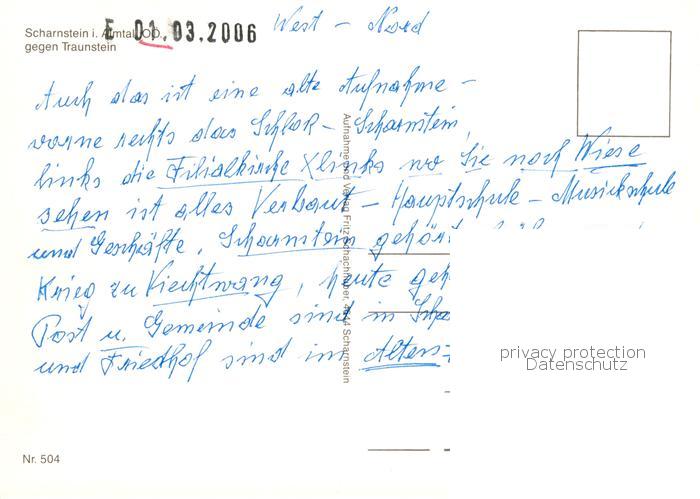 Scharnstein i. Almtal, OÖ.
gegen Traunstein
E 01.03.2006
West - Nord
Auch das ist eine alte Aufnahme -
vorne rechts das Schloß - Scharnstein
links die Filialkirche X links wo Sie noch Wiese
sehen ist alles Verbaut - Hauptschule - Musikschule
und Geschäfte. Scharnstein gehör
Krieg zu Viechtwang, heute geh
Post u. Gemeinde sind in Scha
und Friedhof sind im Alters-
Aufnahme und Verlag Fritz Schachhuber, Scharnstein
Nr. 504
privacy protection
Datenschutz